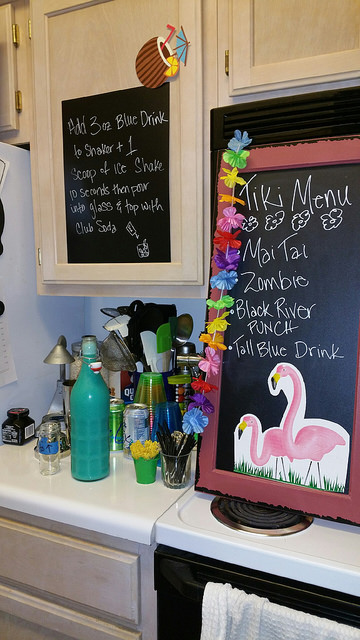 Add 3 oz Blue Drink
to Shaker + 1
scoop of ice Shake
10 seconds then pour
into glass & top with
Club Soda
Tiki Menu
Mai Tai
Zombie
• Black River
PUNCH
• Tall Blue Drink